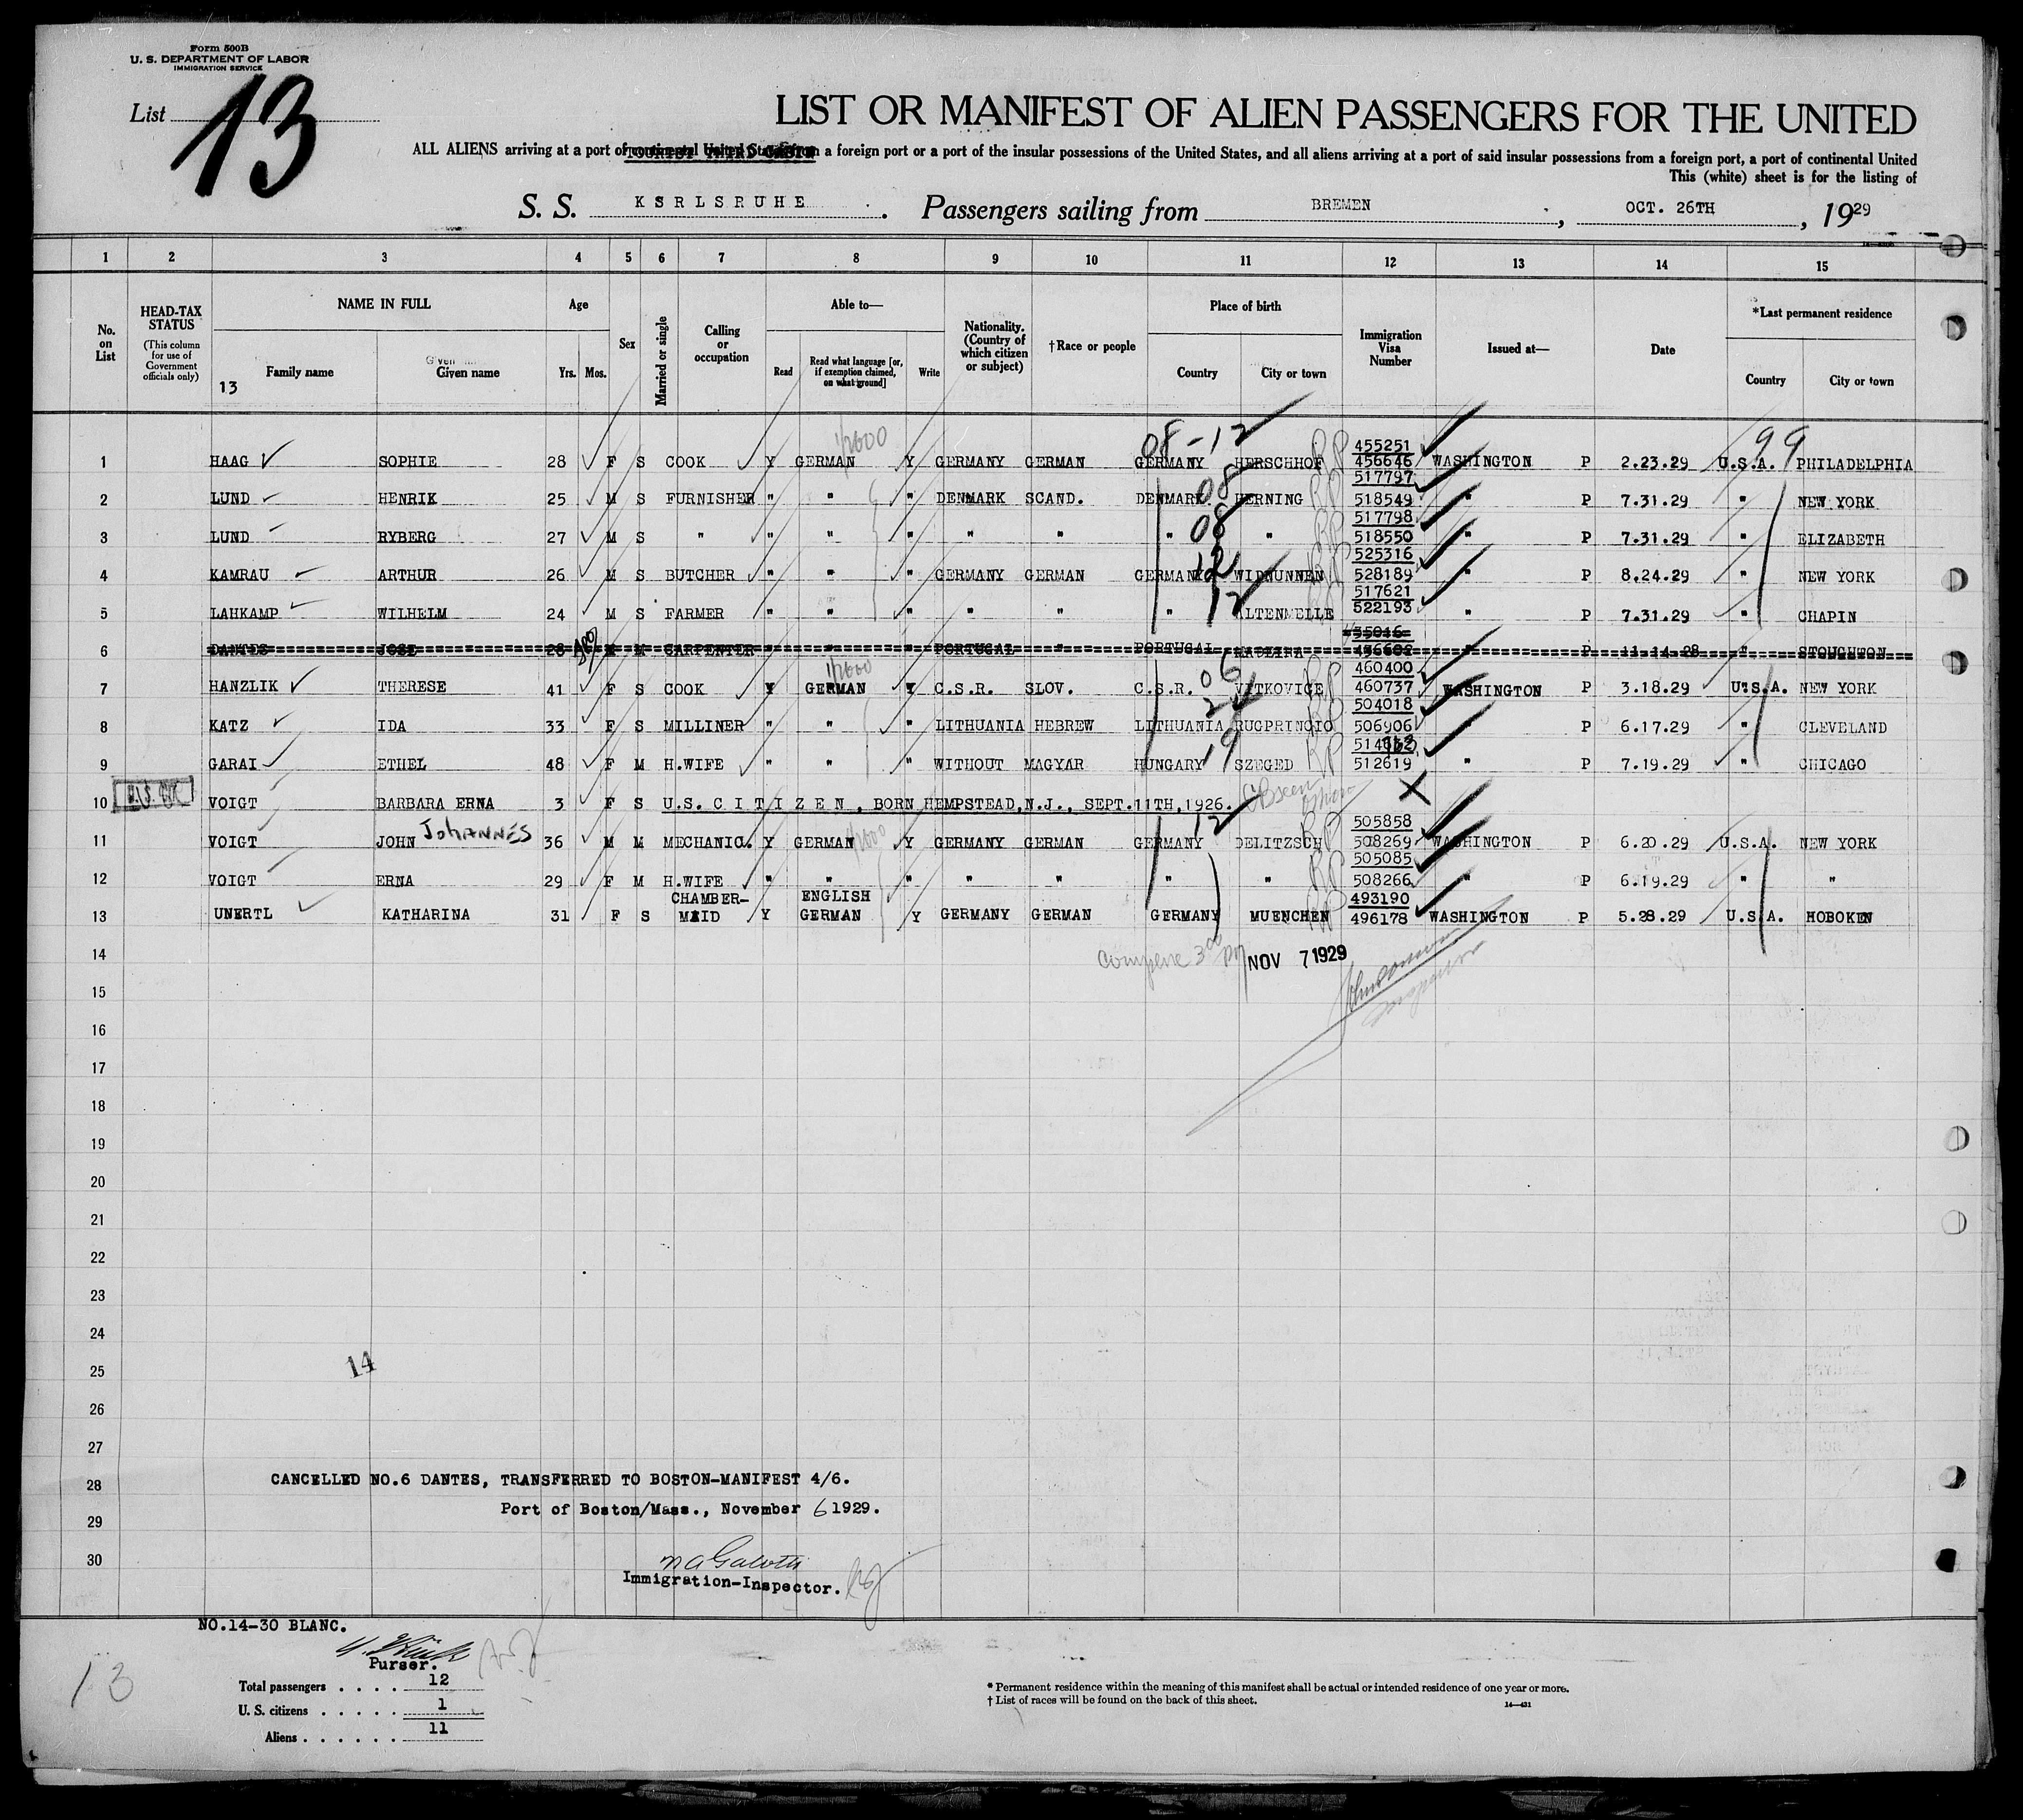 Form 500B
U. S. DEPARTMENT OF LABOR
IMMIGRATION SERVICE
List 13
LIST OR MANIFEST OF ALIEN PASSENGERS FOR THE UNITED
ALL ALIENS arriving at a port of continental United States from a foreign port or a port of the insular possessions of the United States, and all aliens arriving at a port of said insular possessions from a foreign port, a port of continental United
This (white) sheet is for the listing of
S. S. KSRLSRUHE . Passengers sailing from BREMEN , OCT. 26TH , 1929
1 2 3 4 5 6 7 8 9 10 11 12 13 14 15
No. on List
HEAD-TAX STATUS (This column for use of Government officials only)
NAME IN FULL
Family name Given name
13
Age
Yrs. Mos.
Sex
Married or single
Calling or occupation
Able to—
Read Read what language [or, if exemption claimed, on what ground] Write
Nationality. (Country of which citizen or subject)
†Race or people
Place of birth
Country City or town
Immigration Visa Number
Issued at—
Date
*Last permanent residence
Country City or town
08-12 99
455251
1 HAAG SOPHIE 28 F S COOK Y GERMAN Y GERMANY GERMAN GERMANY HERSCHHOF 456646 WASHINGTON P 2.23.29 U.S.A. PHILADELPHIA
517797
2 LUND HENRIK 25 M S FURNISHER " " " DENMARK SCAND. DENMARK 08 HERNING 518549 " P 7.31.29 " NEW YORK
517798
3 LUND RYBERG 27 M S " " " " " " " 08 " 518550 " P 7.31.29 " ELIZABETH
525316
4 KAMRAU ARTHUR 26 M S BUTCHER " " " GERMANY GERMAN GERMANY 12 WIDNUNNEN 528189 " P 8.24.29 " NEW YORK
517621
5 LAHKAMP WILHELM 24 M S FARMER " " " " " " 12 ALTENMELLE 522193 " P 7.31.29 " CHAPIN
6 DANTES JOSE 28 M M CARPENTER " " " PORTUGAL " PORTUGAL P 11.14.28 " STOUGHTON
460400
7 HANZLIK THERESE 41 F S COOK Y GERMAN Y C.S.R. SLOV. C.S.R. 06 VITKOVICE 460737 WASHINGTON P 3.18.29 U.S.A. NEW YORK
504018
8 KATZ IDA 33 F S MILLINER " " " LITHUANIA HEBREW LITHUANIA RUGPRINCIO 506906 P 6.17.29 " CLEVELAND
9 GARAI ETHEL 48 F M H.WIFE " " " WITHOUT MAGYAR HUNGARY 19 SZEGED 512619 " P 7.19.29 " CHICAGO
10 VOIGT BARBARA ERNA 3 F S U.S. C I T I Z E N , BORN HEMPSTEAD,N.J., SEPT.11TH,1926.
505858
11 VOIGT JOHN JOHANNES 36 M M MECHANIC. Y GERMAN Y GERMANY GERMAN GERMANY 12 DELITZSCH 508269 WASHINGTON P 6.20.29 U.S.A. NEW YORK
505085
12 VOIGT ERNA 29 F M H.WIFE " " " " " " " 508266 " P 6.19.29 " "
CHAMBER- ENGLISH 493190
13 UNERTL KATHARINA 31 F S MAID Y GERMAN Y GERMANY GERMAN GERMANY MUENCHEN 496178 WASHINGTON P 5.28.29 U.S.A. HOBOKEN
14 NOV 7 1929
15
16
17
18
19
20
21
22
23
24
25 14
26
27
28 CANCELLED NO.6 DANTES, TRANSFERRED TO BOSTON-MANIFEST 4/6.
Port of Boston/Mass., November 6 1929.
29
30
Immigration-Inspector.
NO.14-30 BLANC.
Purser.
13
Total passengers . . . . 12
U. S. citizens . . . . . 1
Aliens . . . . . . 11
* Permanent residence within the meaning of this manifest shall be actual or intended residence of one year or more.
† List of races will be found on the back of this sheet.
14—431